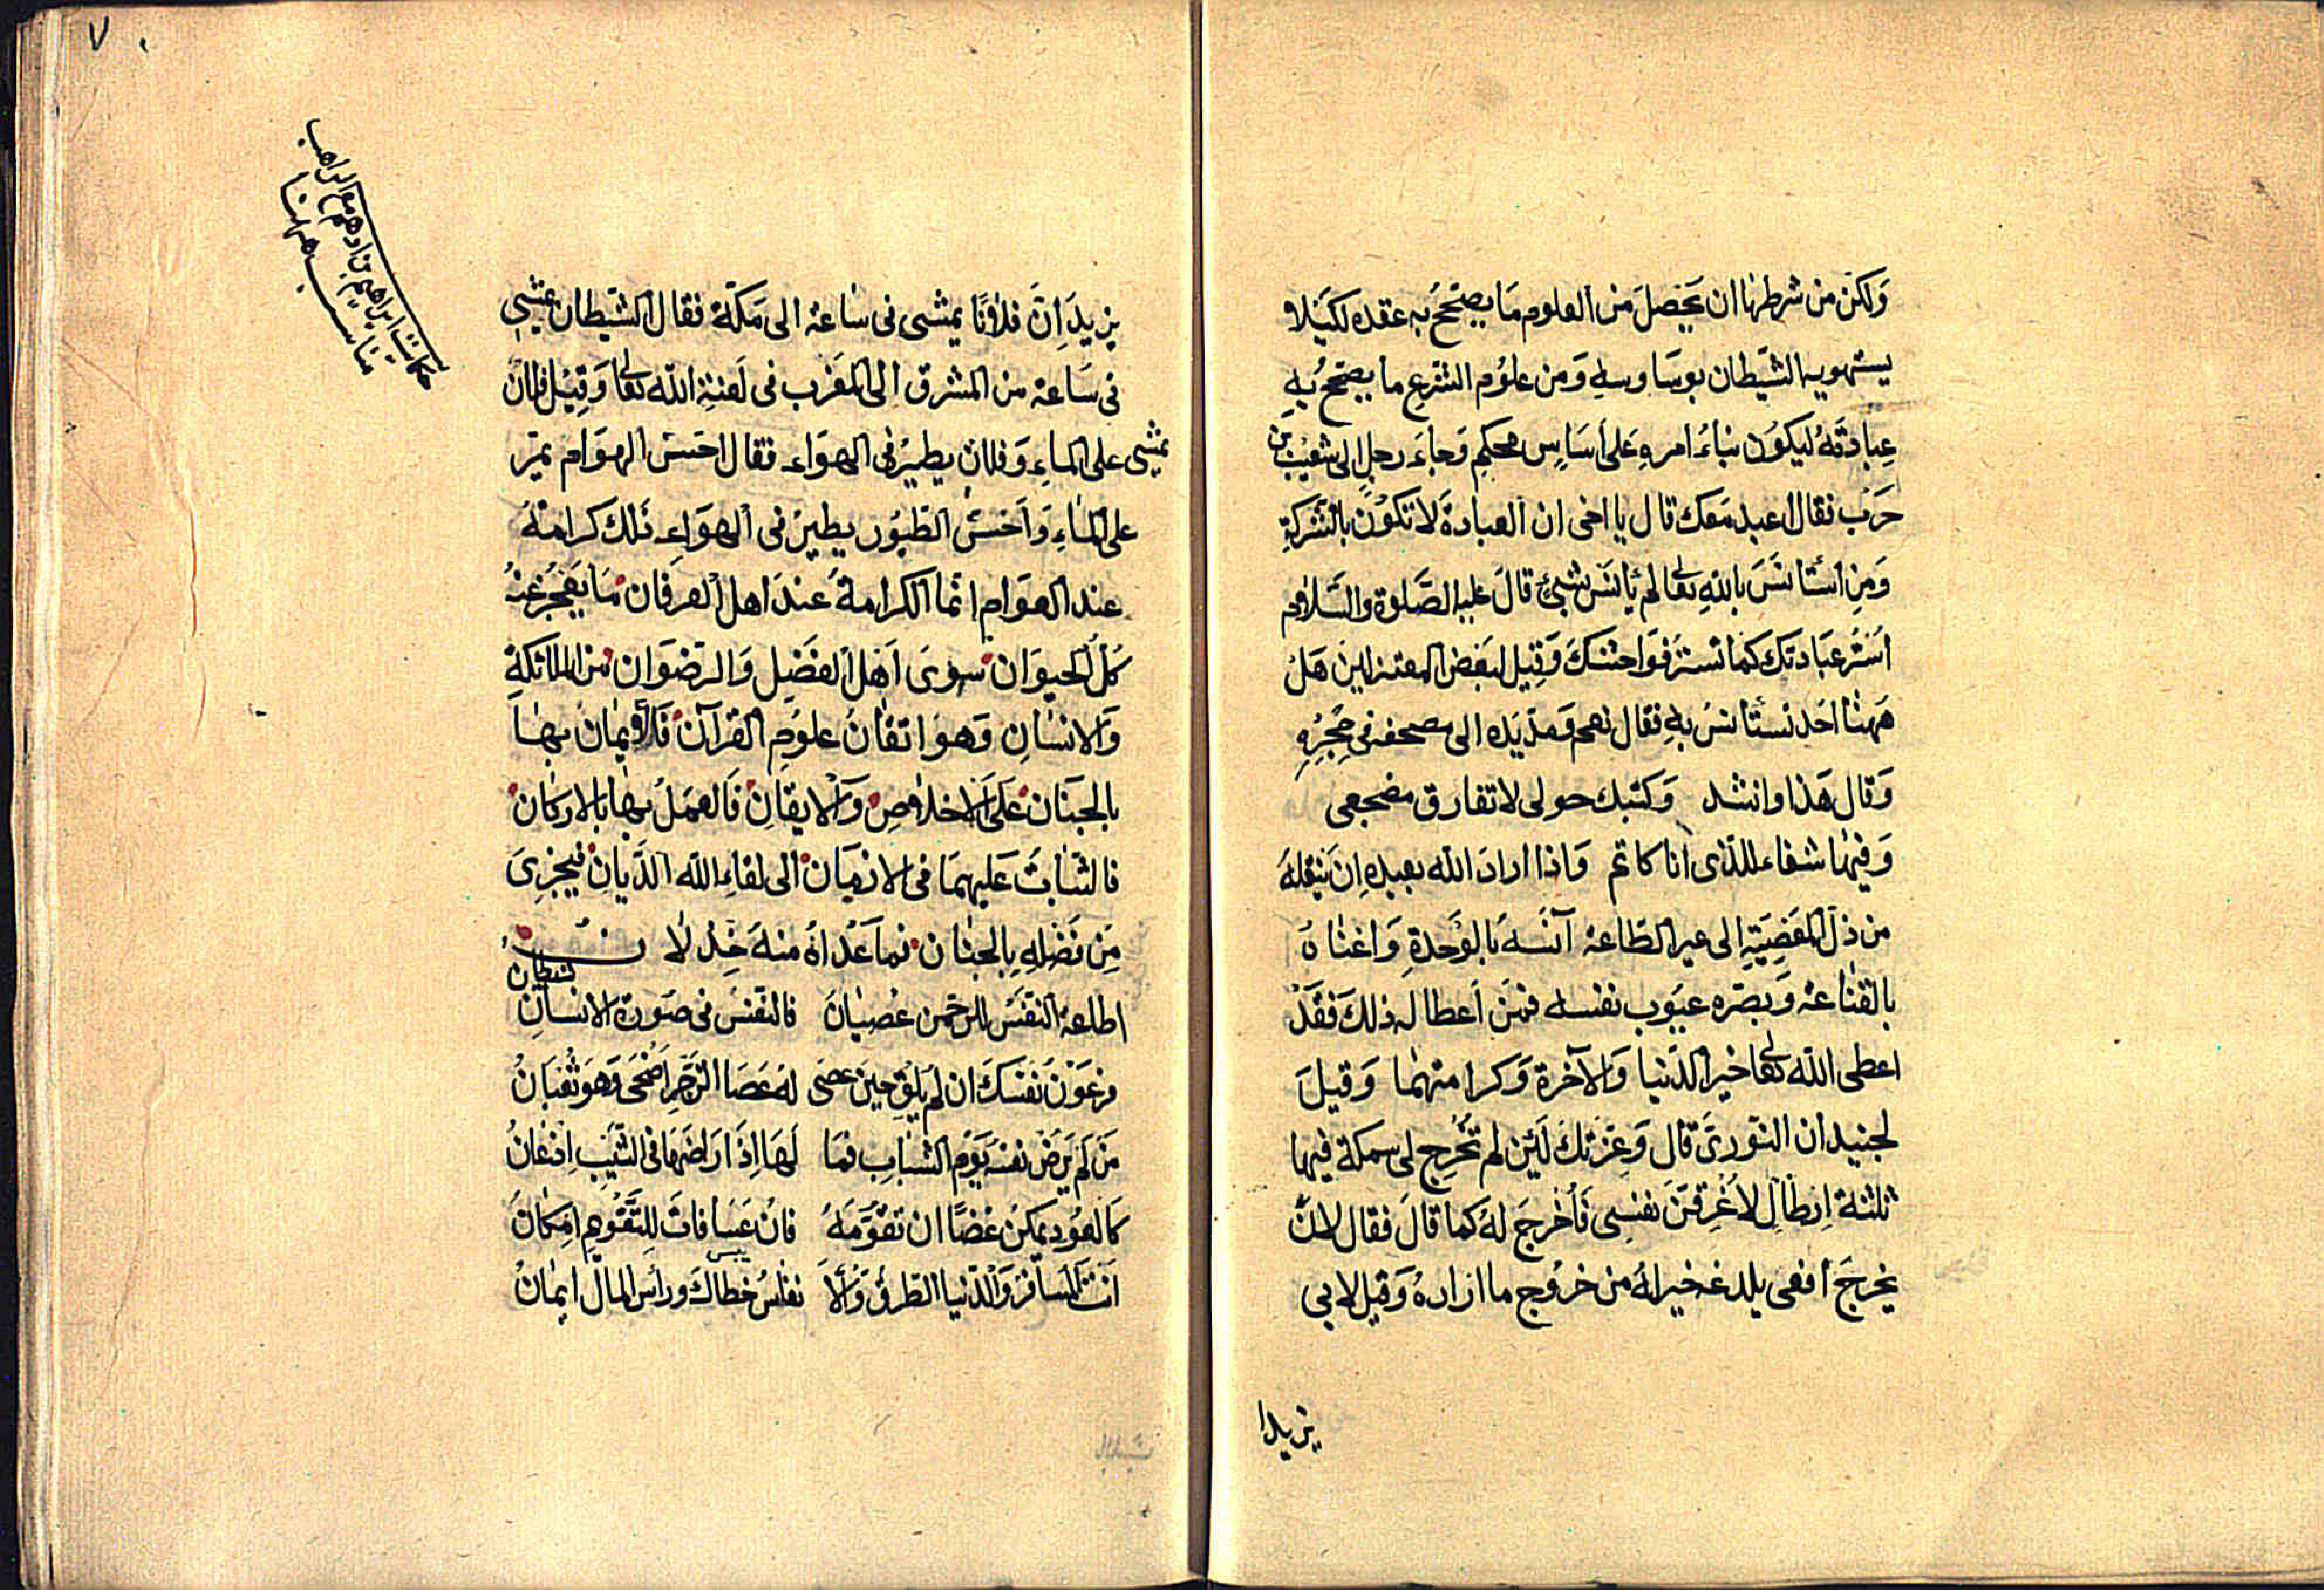 وَلكن من شرطها ان يحصلَ من العلوم مَا يصحّحَ به عقده لكيلا
يستهويه الشيطان بوسَاوسه وَمن علوُم الشرع ما يصحّحُ به
عِبادتَهُ ليكوُن بناءُ امرهِ عَلى أسَاسٍ محكمٍ وَجاءَ رجل الى شعَيْب بن
حَرَب فقال اعبد مَعك قال يا اخى ان العبادةَ لا تكوْن بالشركةِ
وَمِن استأنسَ باللهِ تعالى لم يأنَسْ بشئٍ قالَ عليه الصَّلوة والسّلام
أسْتُر عبَادتك كمَا تستر فوَاحشكَ وَقيل لبَعض المعتزلين هَلْ
هَهنا احَد نستأنسُ بهِ فقال نعم وَمدّ يَده الى مصحفه فى حِجْرِهِ
وَقال هَذا وانشد وَكتبك حولى لا تفارق مضجعى
وَفيهَا شفاء للذى انا كاتم وَاذا ارادَ الله بعبدهِ انْ ينقلهُ
من ذلّ المعَصِيَةِ الى عز الطّاعة آنَسهُ بالوَحدةِ وَاغناهُ
بالقناعة وَبصّره عيوُب نفسه فمَن أعطا له ذلكَ فقَدْ
اعطى الله تعالى خير الدّنيا وَالآخرة وَكرامتهمَا وَقيلَ
لجنيد ان النوّرىّ قال وَعِزّتكَ لَئِن لم تُخْرج لى سمكة فيها
ثلثة ارطالٍ لاُغرقنّ نفسى فأُخرجَ لهُ كما قالَ فقال لانّ
يخرجَ أفعى يلدغه خير لهُ من خروُج ما ارادهُ وَقيل لابى
يزيد ا
٧٠
حكايت ابراهيم بن ادهم مع الراهب
مناسب ههنا
يزيدَ اِنّ فلانًا يمشى فى سَاعة الى مَكّة فقال الشيطان يمشى
فى سَاعة من المشرق الى المغرَب فى لَعنةِ الله تعالى وَقيْل فلانٌ
يمشى على الماءِ وَفلان يطيرُ فى الهوَاء فقال اخسّ الهوَام يمرّ
على الماءِ وَأخسّ الطيُور يطيرُ فى الهوَاءِ فلك كرامتهُ
عند العوَام انّما الكرامةَ عندَ اهل العرفان مَا يعَجُز عَنهُ
كلُّ الحيوَان سوَى أهل الفضَل وَالرضوَان من الملائكة
وَالانسَان وَهوَ اتقانُ علوُم القرآن فَالأيمانُ بهَا
بالجنَان عَلى الاخلاص وَالايقانِ فالعمَلُ بها بالاركان
فالثباتُ عَليهمَا فى الازمَان الى لقاء الله الدَّيان فيجزِىَ
مِن فضَلهِ بالجنان فمَا عَدَاهُ منهُ خِذْلان
اطاعة النفَسْ للرحمن عصْيانَ فالنفسُ فى صَورة الانسَان شيطان
فرعَوْنُ نفسَكَ ان لم يلق حين عصَى لهُ عَصَا الزجرِ اضحَى وَهوَ ثعْبَانُ
مَن لَم يَرضْ نفسهُ يَوْم الشبابِ فمَا لَهَا اِذا رَاضَهَا فى الشّيَبِ اِذْعَانُ
كالعوُد يمكنُ غضًّا ان تقوّمَهُ فانْ عَسَا فاتَ للتَّقوْيم اِمكانُ
يبس
أنت المسَافرُ وَالدّنيا الطرِيقُ وَالا نفاسُ خطاكَ ورأس المال ايمانُ